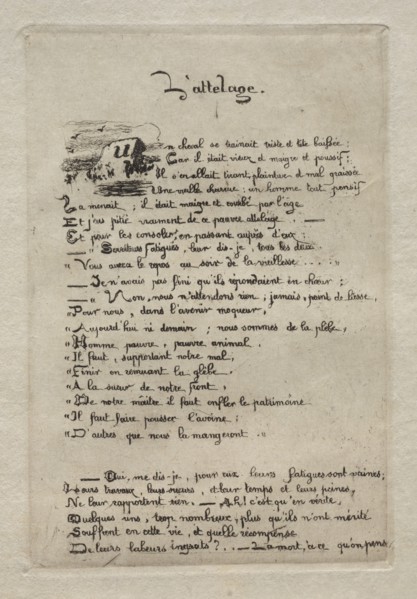 L'attelage.
Un cheval se trainait triste et tête baissée:
Car il était vieux et maigre et poussif:
Il s'en allait tirant, plaintive et mal graissée
Une vieille charrue: un homme tout pensif
La menait; il était maigre et courbé par l'âge
Et j'eus pitié vraiment de ce pauvre attelage. —
Et pour les consoler, en passant auprès d'eux:
— " Serviteurs fatigués, leur dis-je, tous les deux
" Vous aurez le repos au soir de la vieillesse . . . : "
— Je n'avais pas fini qu'ils répondaient en chœur;
— " Non, nous n'attendons rien; jamais, point de liesse,
" Pour nous, dans l'avenir moqueur,
" Aujourd'hui ni demain; nous sommes de la plèbe,
" Homme pauvre, pauvre animal.
" Il faut, supportant notre mal,
" Finir en remuant la glèbe.
" A la sueur de notre front,
" De notre maître il faut enfler le patrimoine
" Il faut faire pousser l'avoine:
" D'autres que nous la mangeront. "
— Oui, me dis-je, pour eux leurs fatigues sont vaines;
Leurs travaux, leurs sueurs, et leur temps et leurs peines,
Ne leur rapportent rien. — Ah! c'est qu'en vérité,
Quelques uns, trop nombreux, plus qu'ils n'ont mérité
Souffrent en cette vie, et quelle récompense
De leurs labeurs ingrats? . . — La mort, à ce qu'on pense